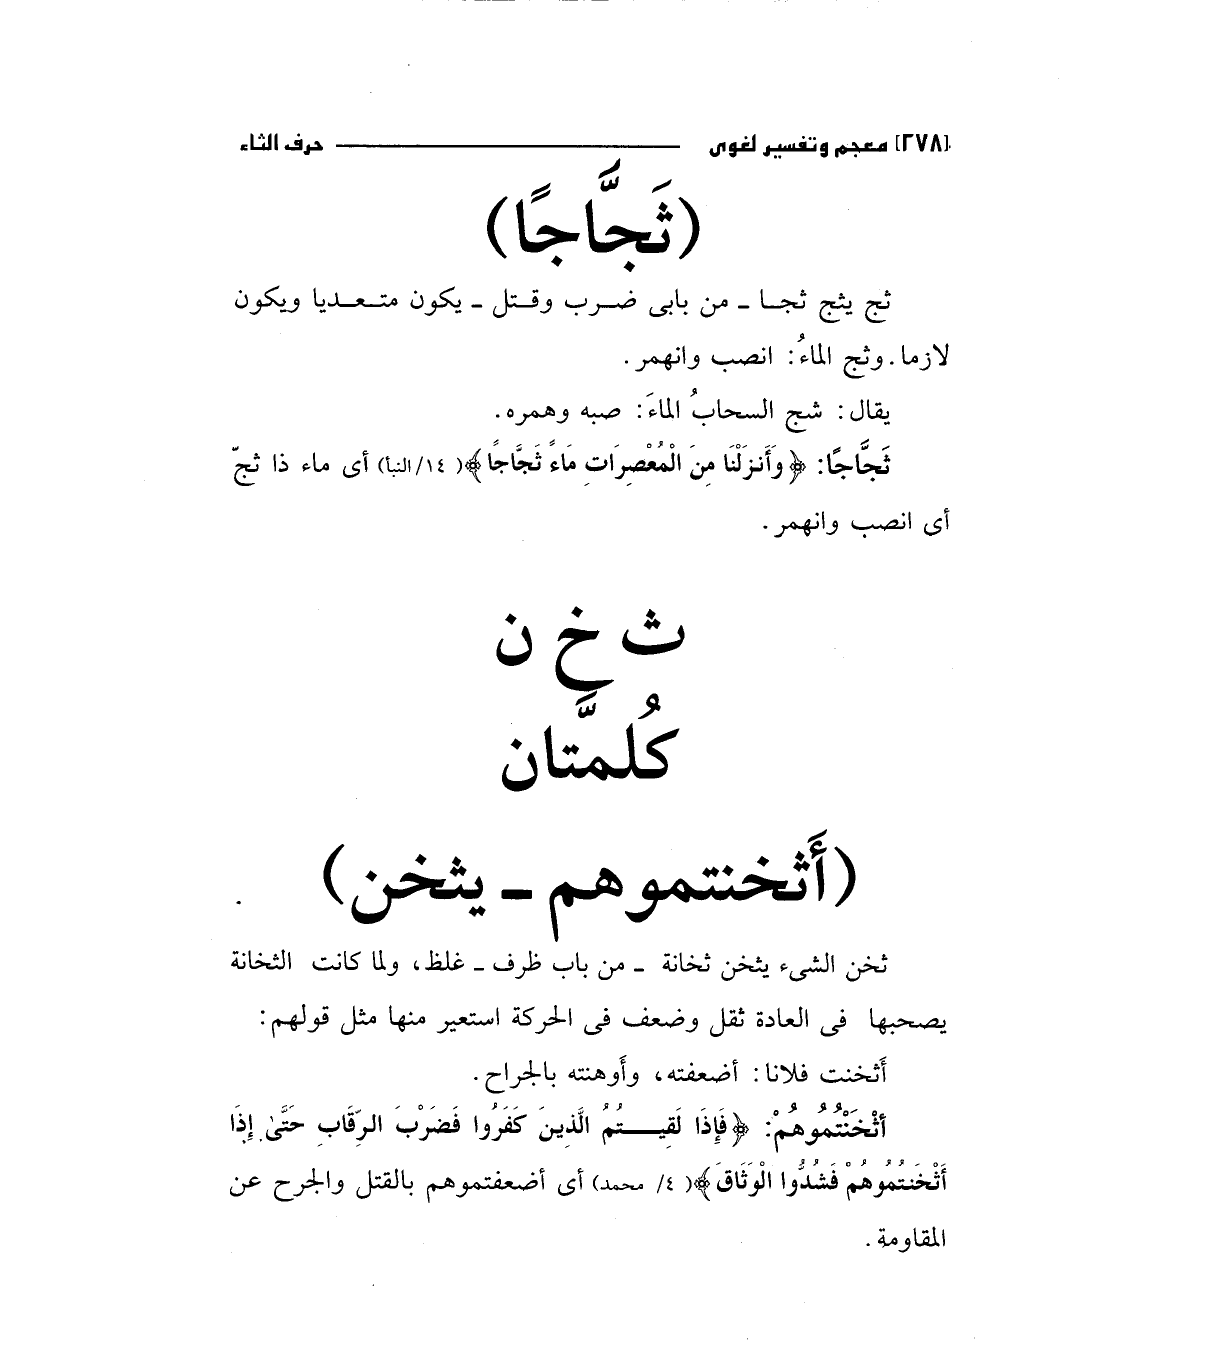 [٢٧٨] معجم وتفسير لغوى حرف الثاء
(ثَجَّاجًا)
ثج يثج ثجـا ـ من بابى ضرب وقتل ـ يكون متعديا ويكون
لازما. وثج الماءُ: انصب وانهمر.
يقال: شج السحابُ الماءَ: صبه وهمره.
ثَجَّاجًا: ﴿وَأَنزَلْنَا مِنَ الْمُعْصِرَاتِ مَاءً ثَجَّاجًا﴾( ١٤/النبأ) أى ماء ذا ثجّ
أى انصب وانهمر.
ث خ ن
كُلمتَّان
(أَثخنتموهم ـ يثخن)
ثخن الشىء يثخن ثخانة ـ من باب ظرف ـ غلظ، ولما كانت الثخانة
يصحبها فى العادة ثقل وضعف فى الحركة استعير منها مثل قولهم:
أَثخنت فلانا: أضعفته، وأَوهنته بالجراح.
أثْخَنْتُمُوهُمْ: ﴿فَإِذَا لَقِيـتُمُ الَّذِينَ كَفَرُوا فَضَرْبَ الرِّقَابِ حَتَّىٰ إِذَا
أَثْخَنتُمُوهُمْ فَشُدُّوا الْوَثَاقَ﴾( ٤/ محمد) أى أضعفتموهم بالقتل والجرح عن
المقاومة.